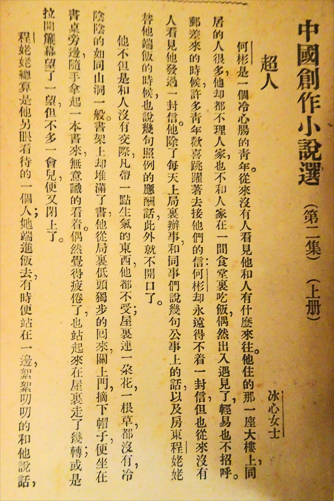 中國創作小說選(第二集)(上册)
超人
冰心女士
何彬是一個冷心腸的青年,從來沒有人看見他和人有什麽來往。他住的那一座大樓上,同
居的人很多,他却都不理人家,也不和人家在一間食堂裏吃飯,偶然出入遇見了,輕易也不招呼。
郵差來的時候,許多青年歡喜跳躍着去接他們的信;何彬却永遠得不着一封信,但也從來沒有
人看見他發過一封信。他除了每天上局裏辦事和同事們說幾句公事上的話以及房東程姥姥
替他端飯的時候,也說幾句照例的應酬話,此外就不開口了。
他不但是和人沒有交際,凡帶一點生氣的東西,他都不受;屋裏連一朶花,一根草,都沒有,冷
陰陰的如同山洞一般。書架上却堆滿了書。他從局裏低頭獨步的回來,關上門,摘下帽子,便坐在
書桌旁邊,隨手拿起一本書來,無意識的看着。偶然覺得疲倦了,也站起來在屋裏走了幾轉,或是
拉開簾幕望了一望,但不多一會兒,便又閉上了。
程姥姥總算是他另眼看待的一個人;她端進飯去,有時便站在一邊,絮絮叨叨的和他說話,